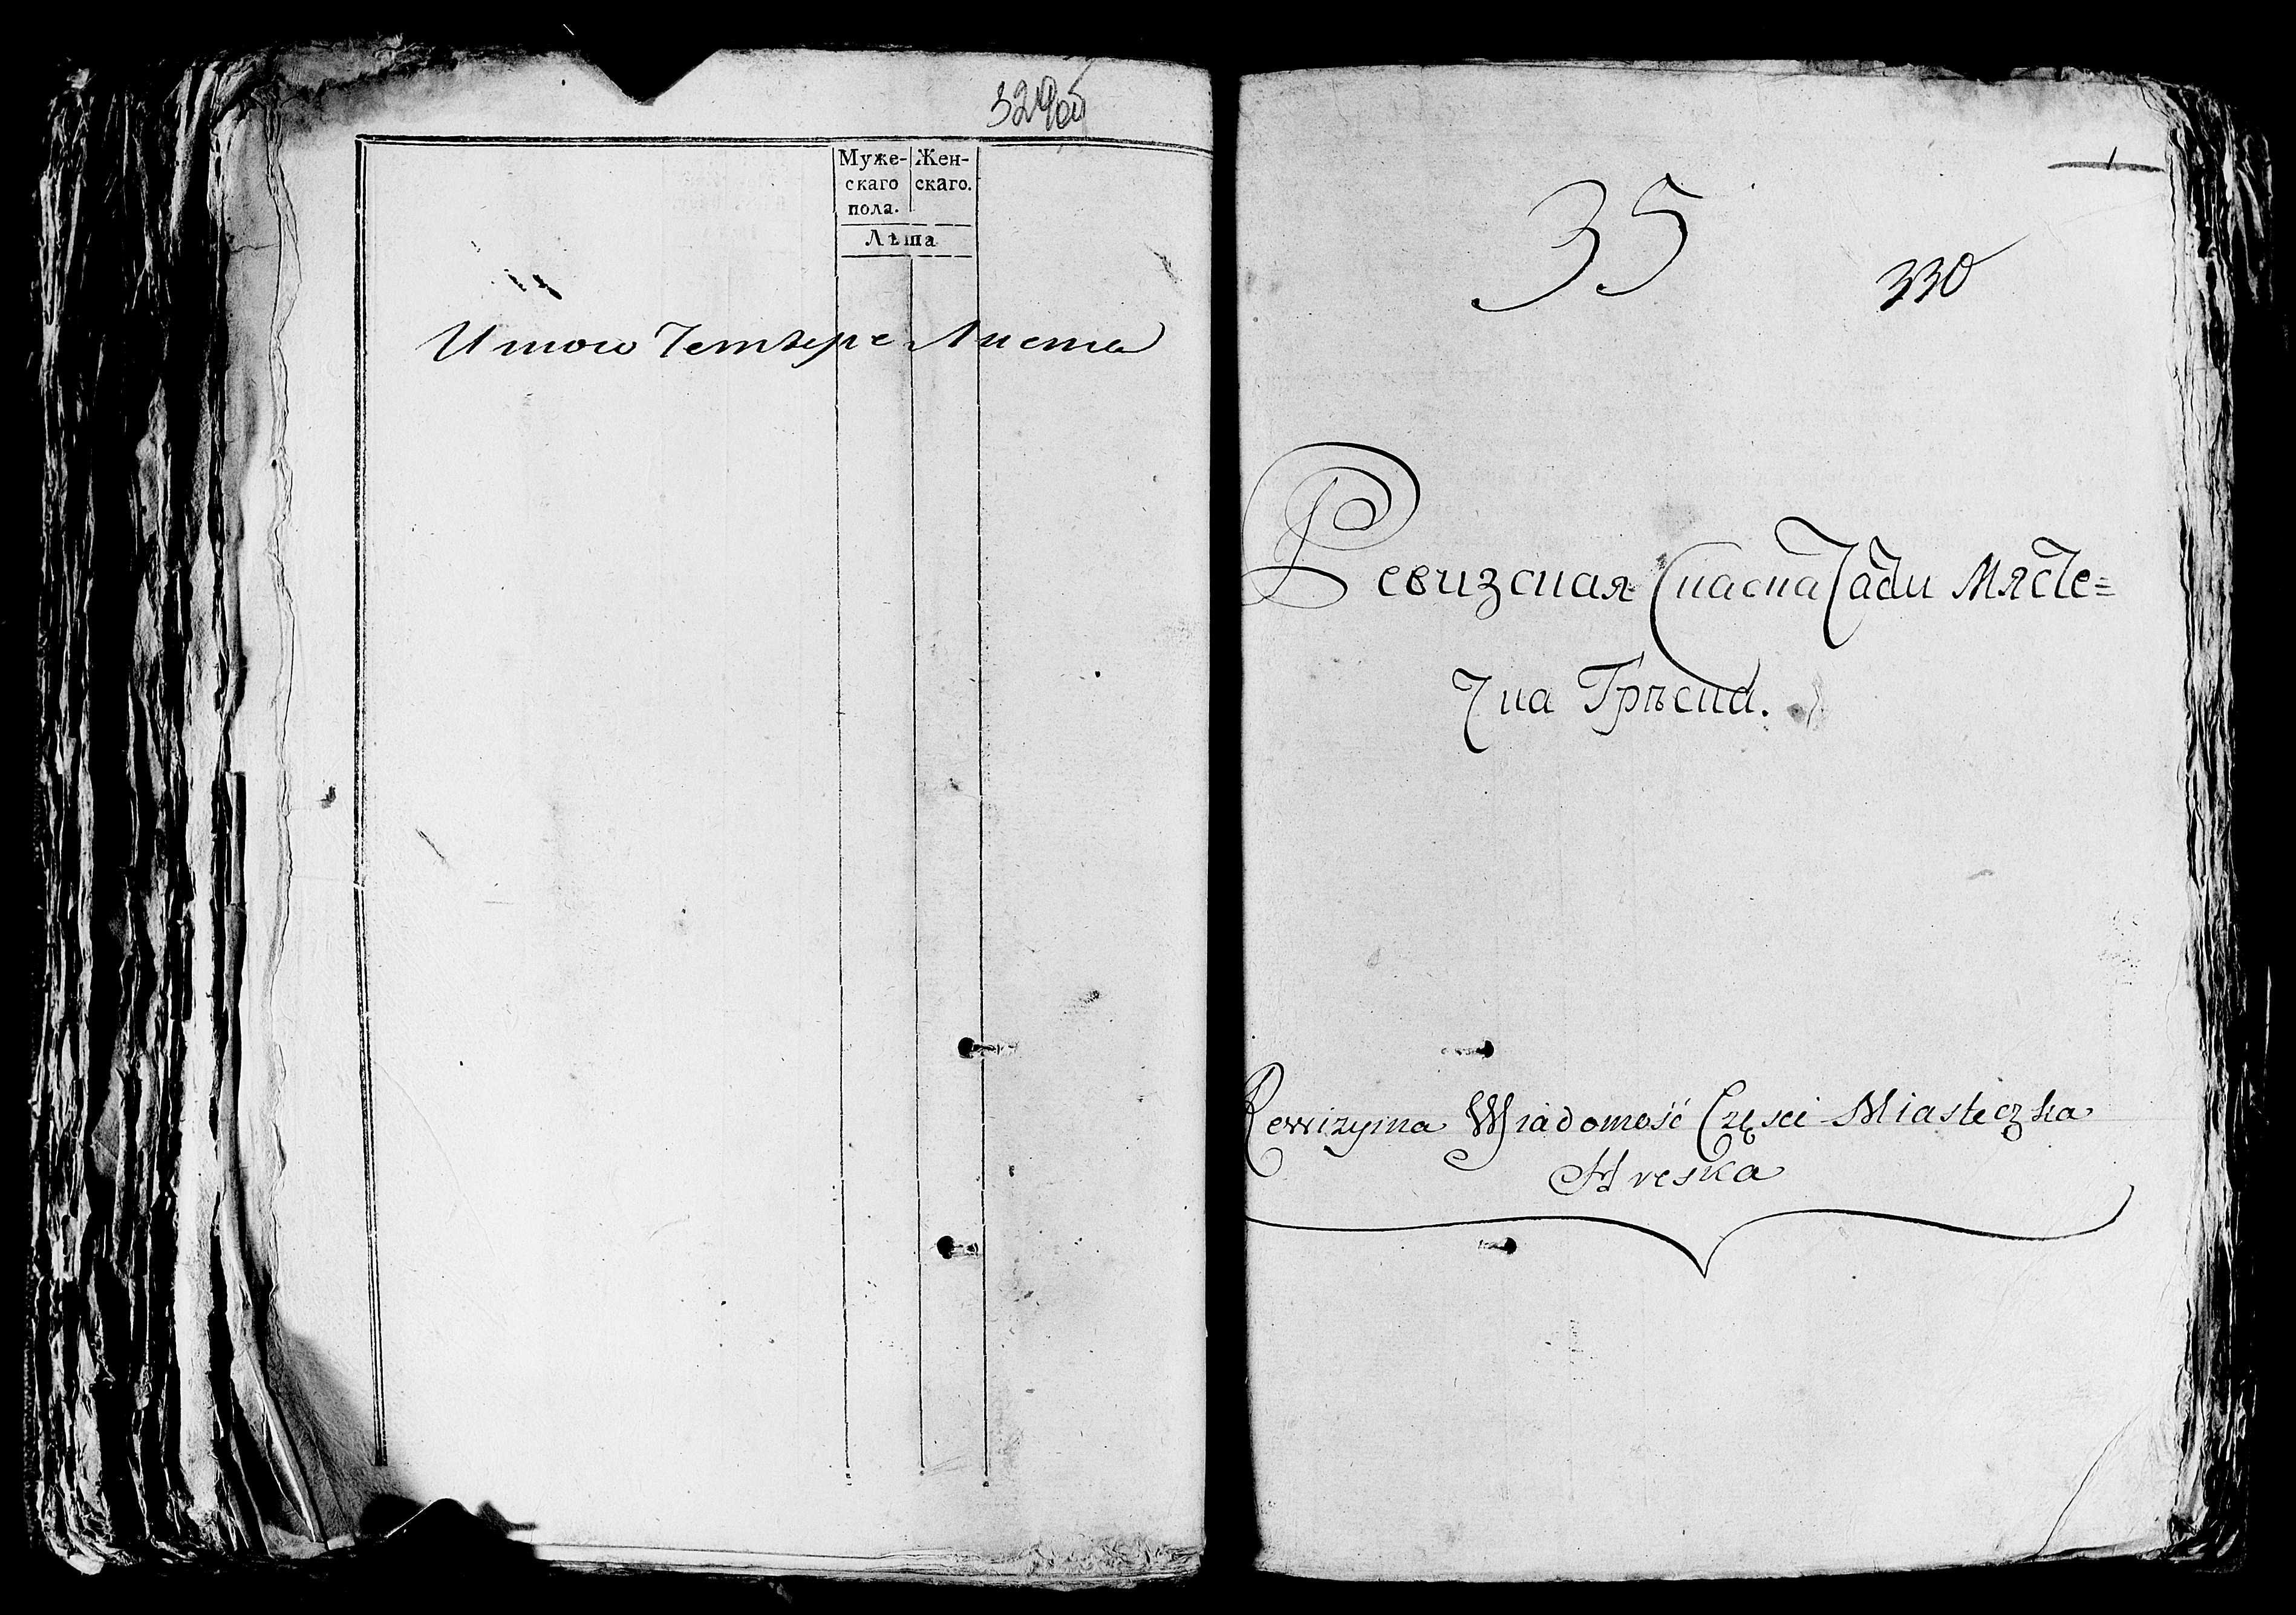 329об
Муже- Жен-
скаго скаго.
пола.
Лѣта
Итого Четыре Листа
1
35
330
Ревизская Скаска Части Мясте=
чка Грѣска.
Rewizyina Wiadomość Częsci Miasteczka
Hreska